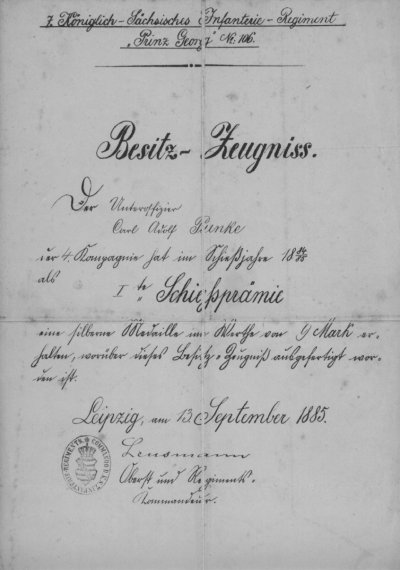 7. Königlich-Sächsisches Infanterie-Regiment
„Prinz Georg" Nr. 106.
Besitz-Zeugniss.
Der Unteroffizier
Carl Adolf
der 4. Kompagnie hat im Schießjahre 1884/85
als
I te Schießprämie
eine silberne Medaille im Werthe von 9 Mark er-
halten, worüber dieses Besitz-Zeugniß ausgefertigt wor-
den ist.
Leipzig, am 13. September 1885.
Oberst und Regiments-
Kommandeur.